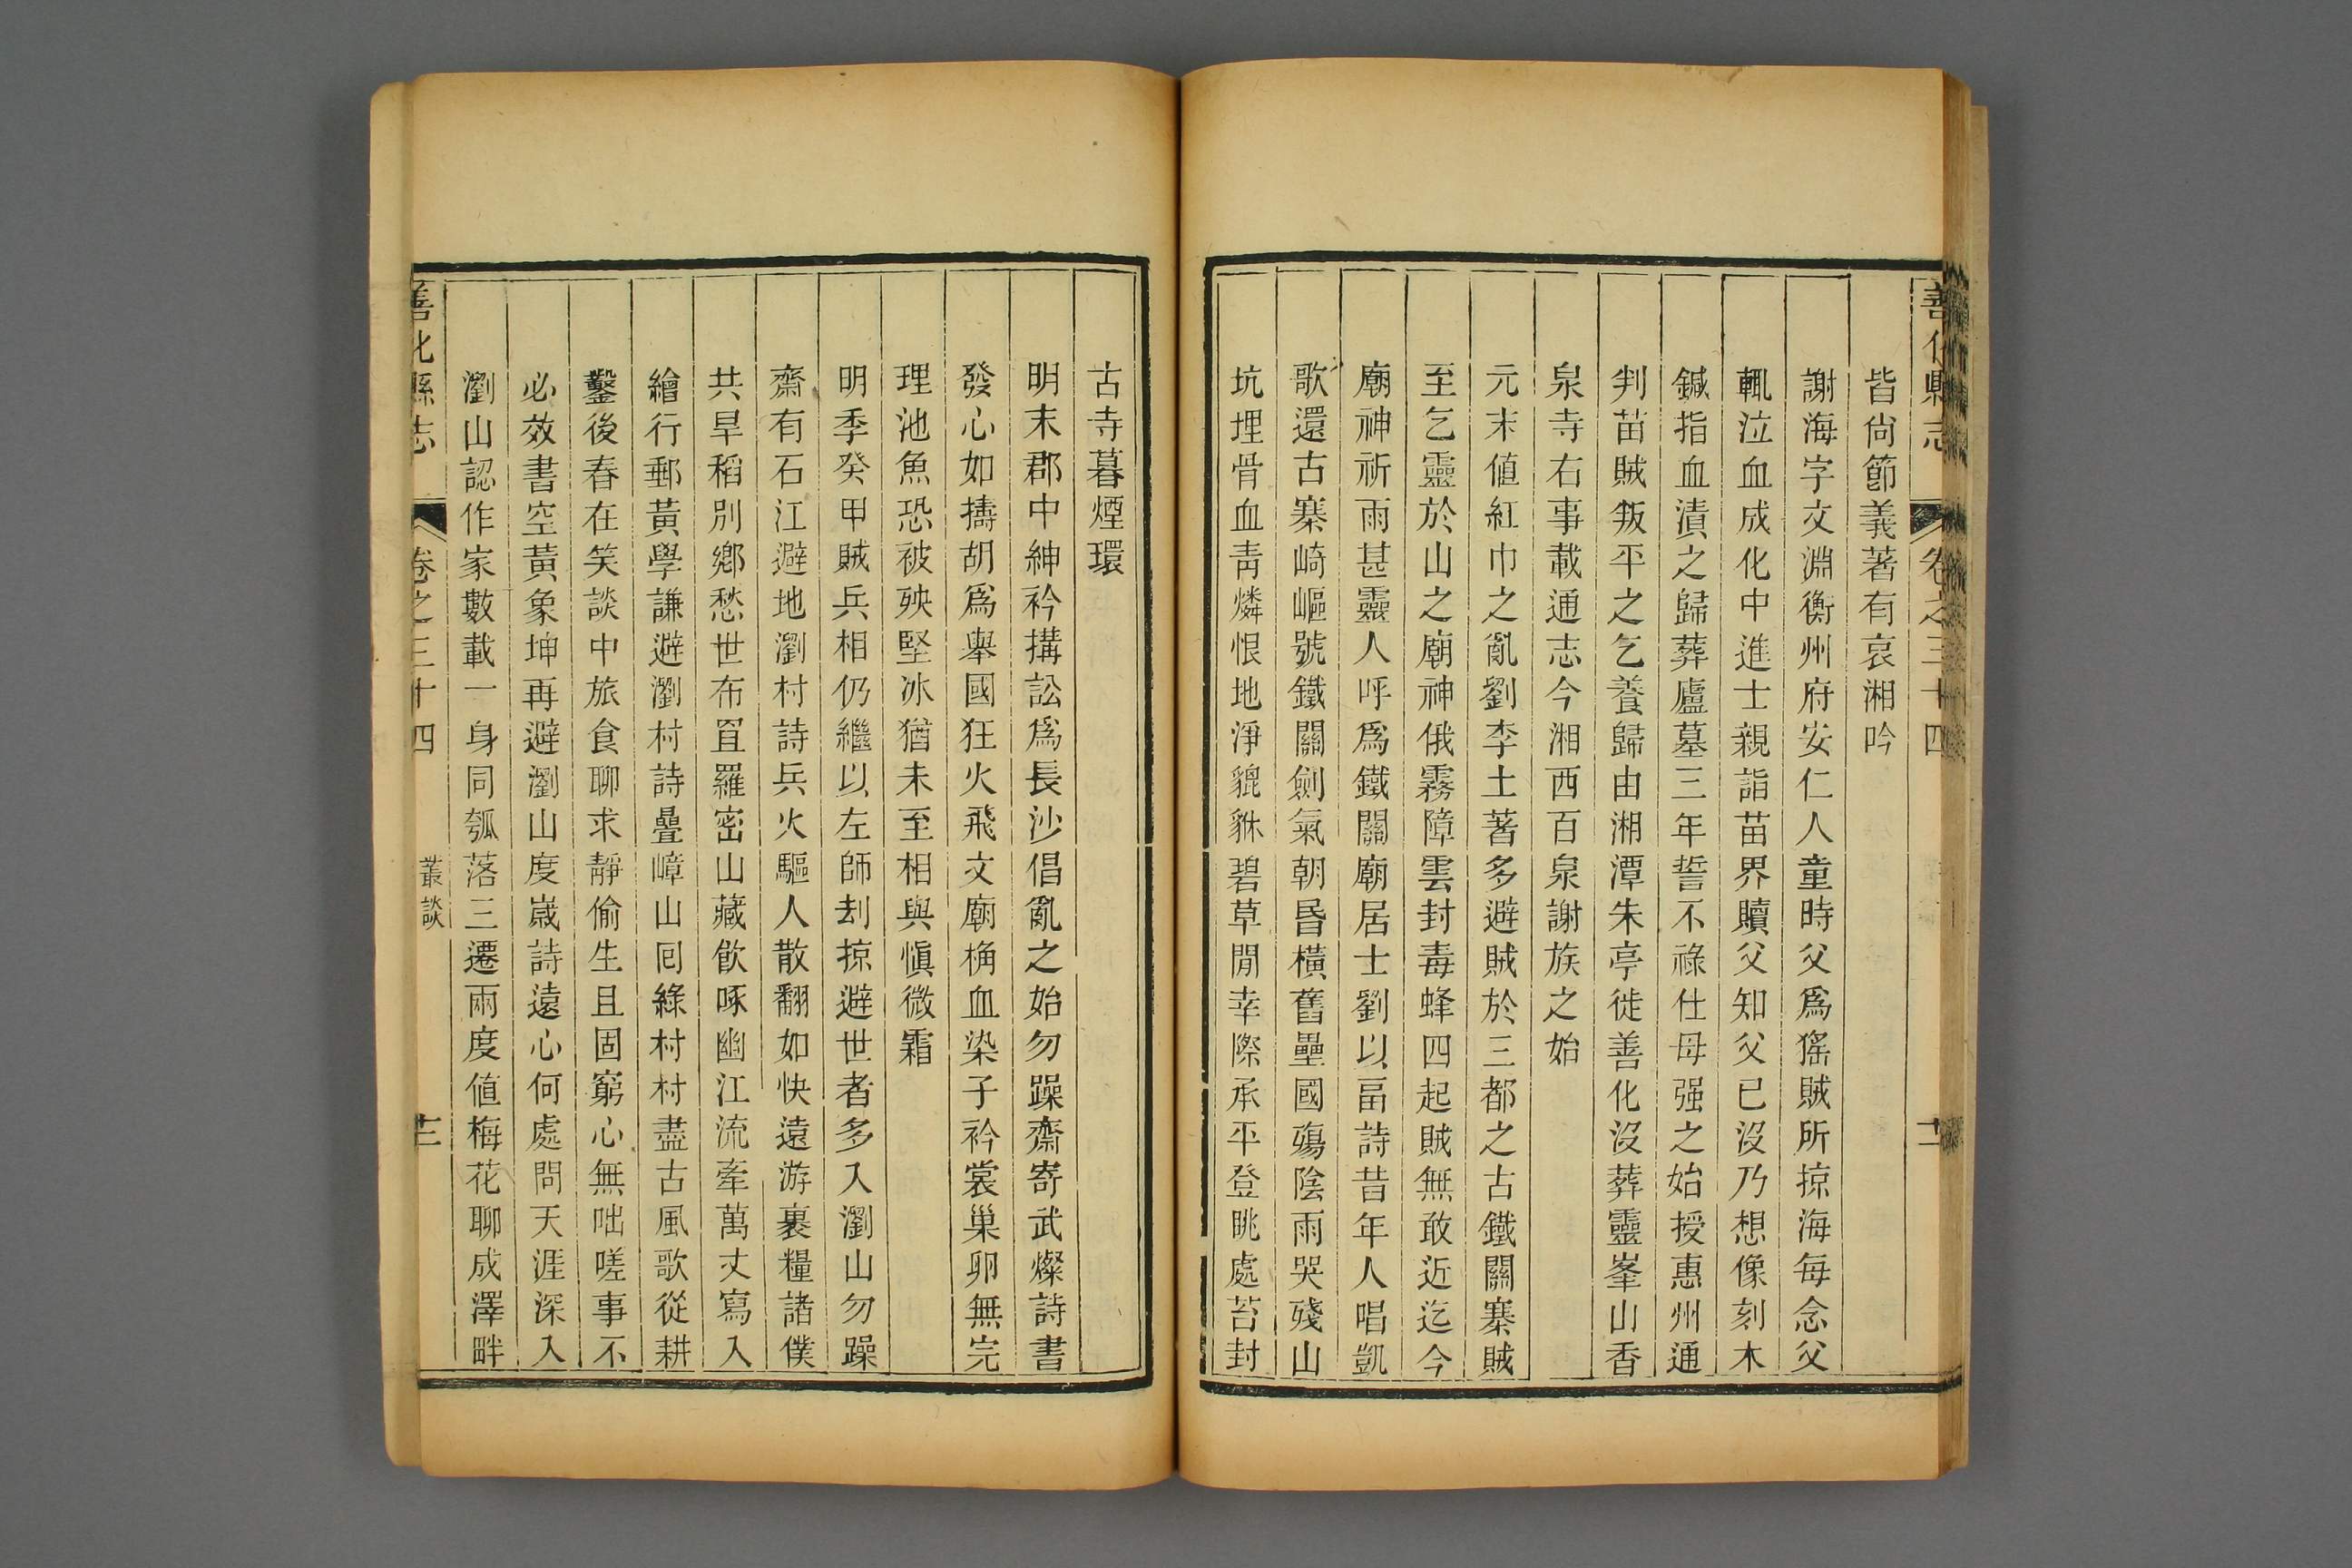 善化縣志 卷之三十四 十二
皆尙節義著有哀湘吟
謝海字文淵衡州府安仁人童時父爲猺賊所掠海每念父
輒泣血成化中進士親詣苗界贖父知父已沒乃想像刻木
鍼指血漬之歸葬廬墓三年誓不祿仕母强之始授惠州通
判苗賊叛平之乞養歸由湘潭朱亭徙善化沒葬靈峯山香
泉寺右事載通志今湘西百泉謝族之始
元末値紅巾之亂劉李土著多避賊於三都之古鐵關寨賊
至乞靈於山之廟神俄霧障雲封毒蜂四起賊無敢近迄今
廟神祈雨甚靈人呼爲鐵關廟居士劉以畐詩昔年人唱凱
歌還古寨崎嶇號鐵關劍氣朝昏橫舊壘國殤陰雨哭殘山
坑埋骨血靑燐恨地淨貔貅碧草閒幸際承平登眺處苔封
古寺暮煙環
明末郡中紳衿搆訟爲長沙倡亂之始勿躁齋寄武燦詩書
發心如擣胡爲舉國狂火飛文廟桷血染子衿裳巢卵無完
理池魚恐被殃堅冰猶未至相與愼微霜
明季癸甲賊兵相仍繼以左師刦掠避世者多入瀏山勿躁
齋有石江避地瀏村詩兵火驅人散翻如快遠游裹糧諸僕
共旱稻別鄕愁世布罝羅密山藏飮啄幽江流牽萬丈寫入
繪行郵黃學謙避瀏村詩疊嶂山囘綠村村盡古風歌從耕
鑿後春在笑談中旅食聊求靜偷生且固窮心無咄嗟事不
必效書空黃象坤再避瀏山度歲詩遠心何處問天涯深入
瀏山認作家數載一身同瓠落三遷兩度値梅花聊成澤畔
善化縣志 卷之三十四 叢談 十三